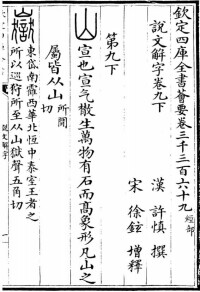 欽定四庫全書會要卷三千三百六十九 經部
說文解字卷九下
漢 許慎 撰
宋 徐鉉 增釋
第九下
山 宣也宣气散生萬物有石而高象形凡山之
屬皆从山 所閒切
嶽 東岱南靃西華北恒中泰室王者之
所以巡狩所至从山獄聲五角切
説文解字